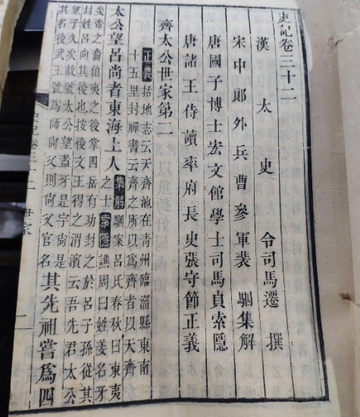 史記卷三十二
漢太史令司馬遷撰
宋中郎外兵曹參軍裴駰集解
唐國子博士宏文館學士司馬貞索隱
唐諸王侍讀率府長史張守節正義
齊太公世家第二
正義括地志云天齊池在青州臨淄縣東南
十五里封禪書云齊之所以爲齊者以天齊
太公望呂尚者東海上人集解駰案呂氏春秋曰東夷
之士索隱譙周曰姓姜名牙
炎帝之裔伯夷之後掌四岳有功封之於呂子孫從其
封姓呂尚其後也按後文王得之渭濱云吾先君太公
望子久矣故號太公望蓋牙是字尚是
其名後武王號爲師尚父則尚父官名
其先祖嘗爲四
世家